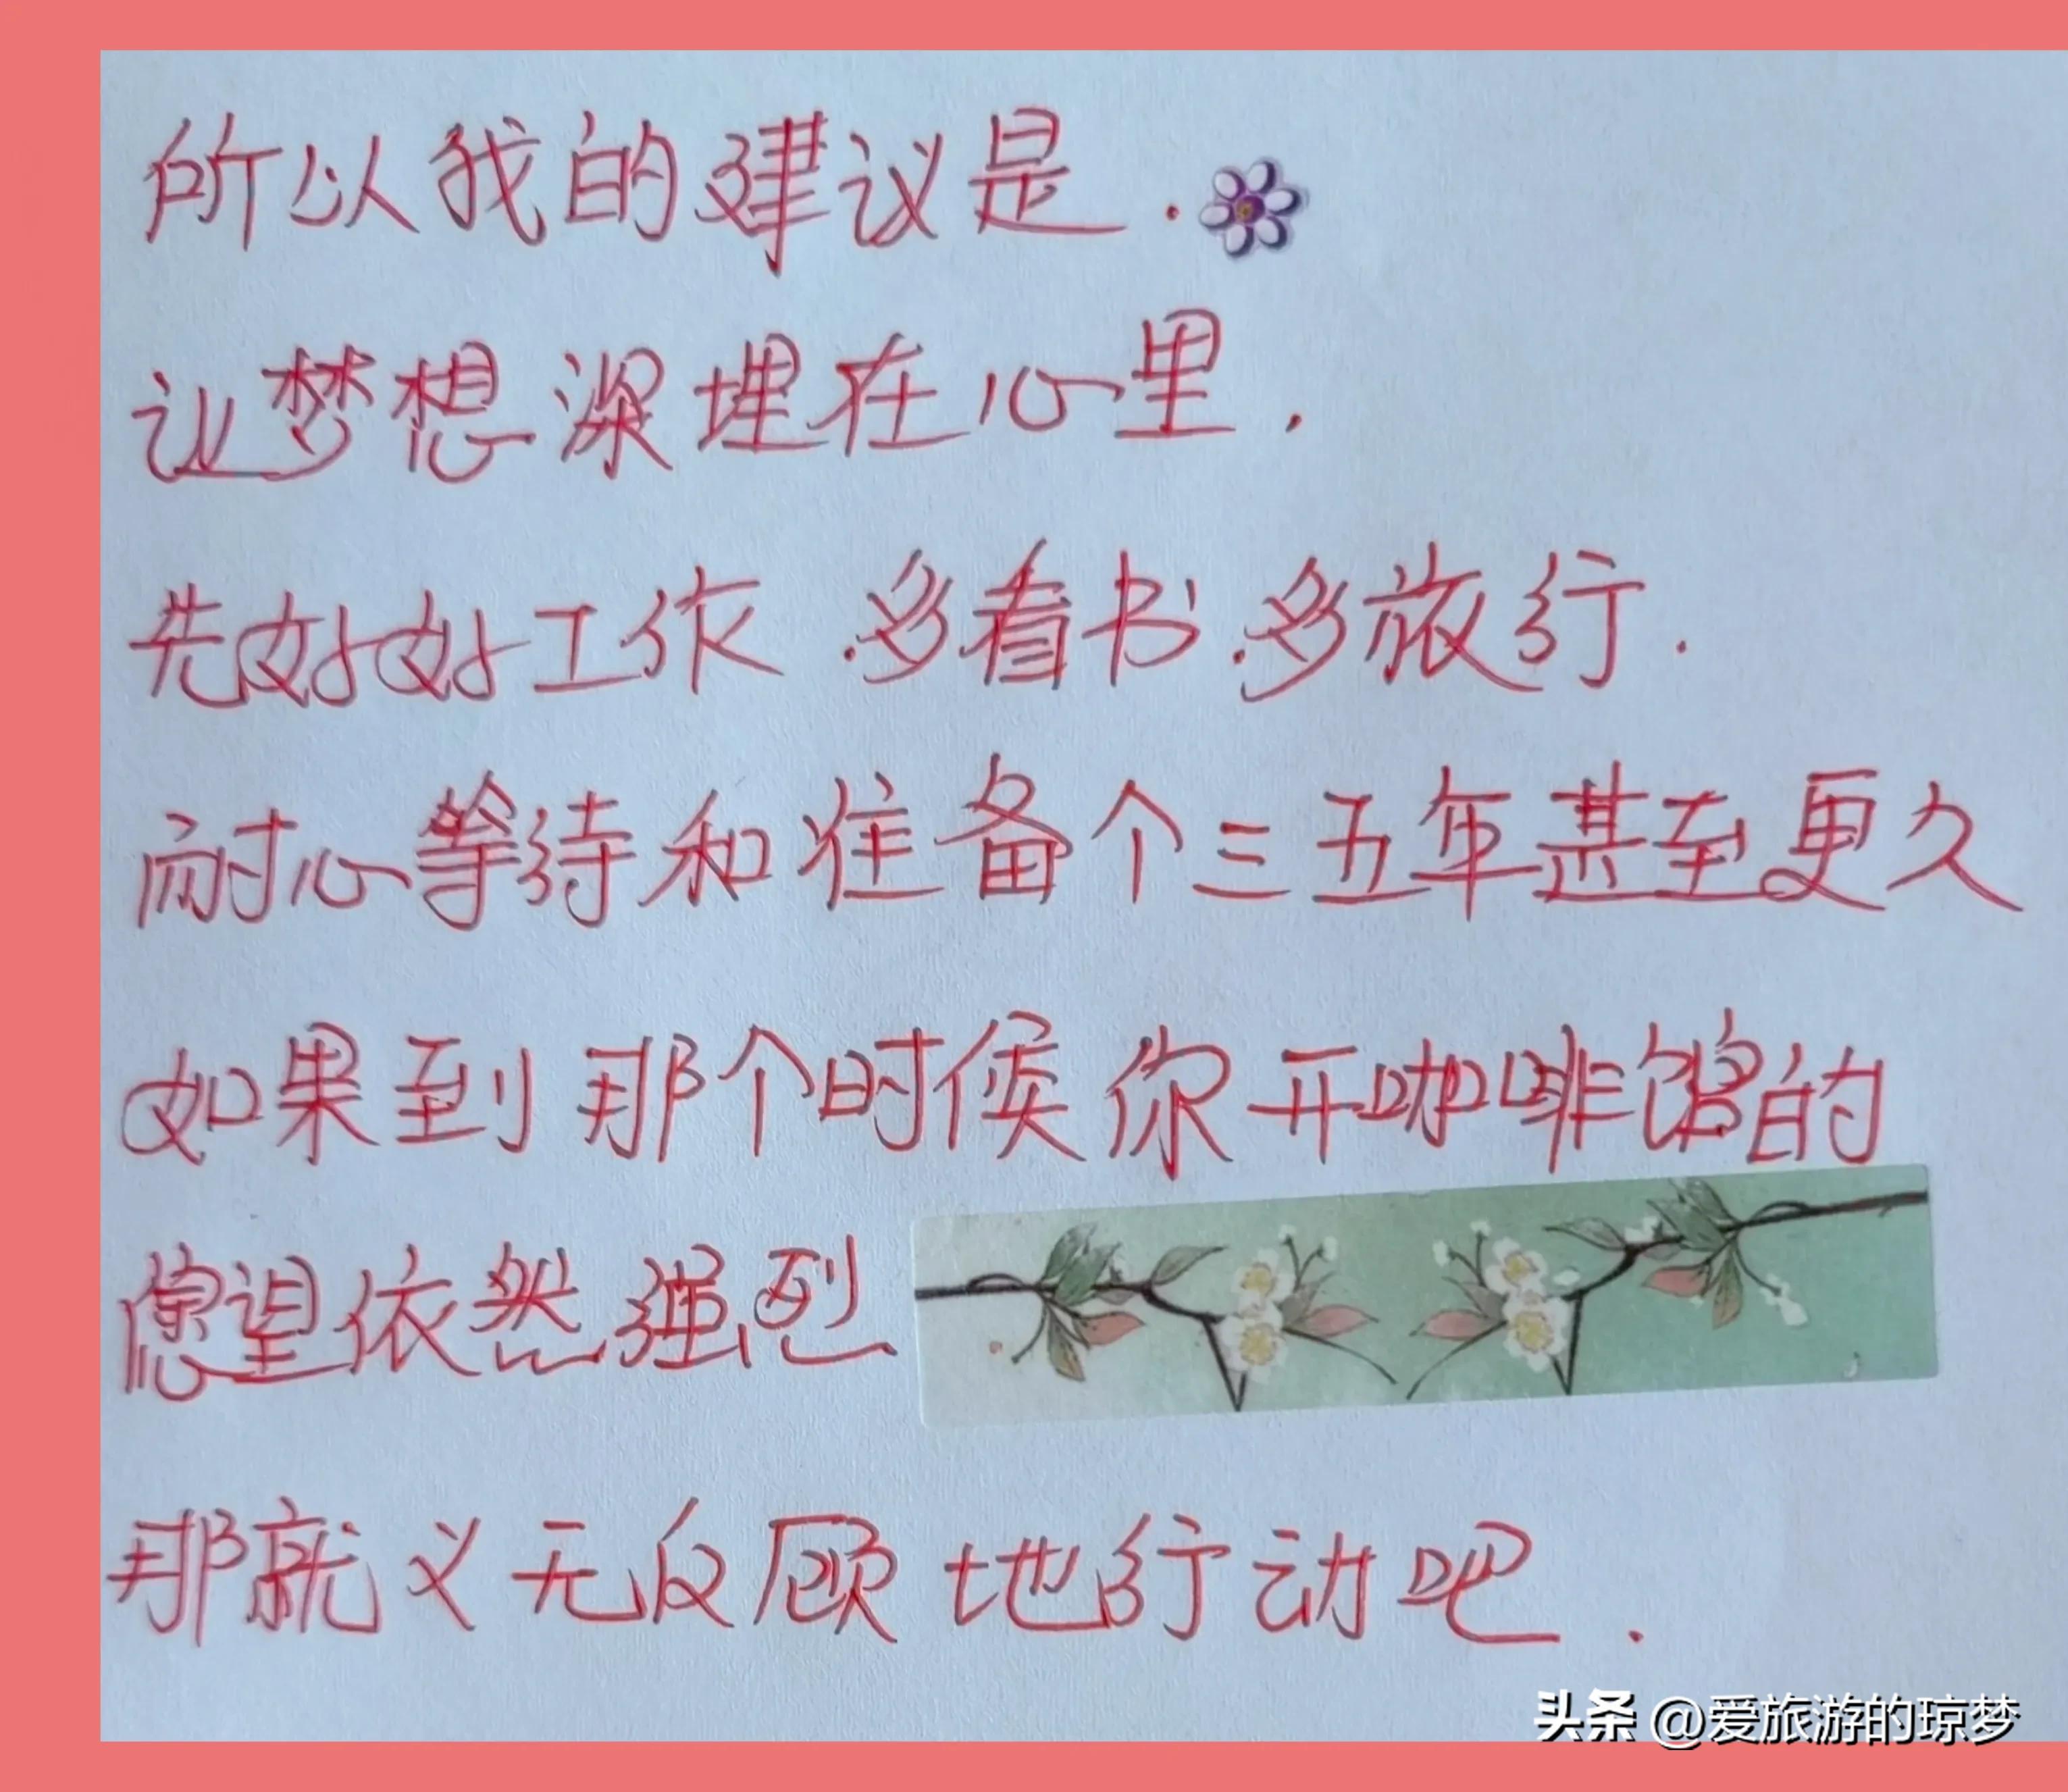 所以我的建议是.
让梦想深埋在心里.
先好好工作.多看书.多旅行.
耐心等待和准备个三五年甚至更久
如果到那个时候你开咖啡馆的
愿望依然强烈
那就义无反顾地行动吧.
头条 @爱旅游的琼梦